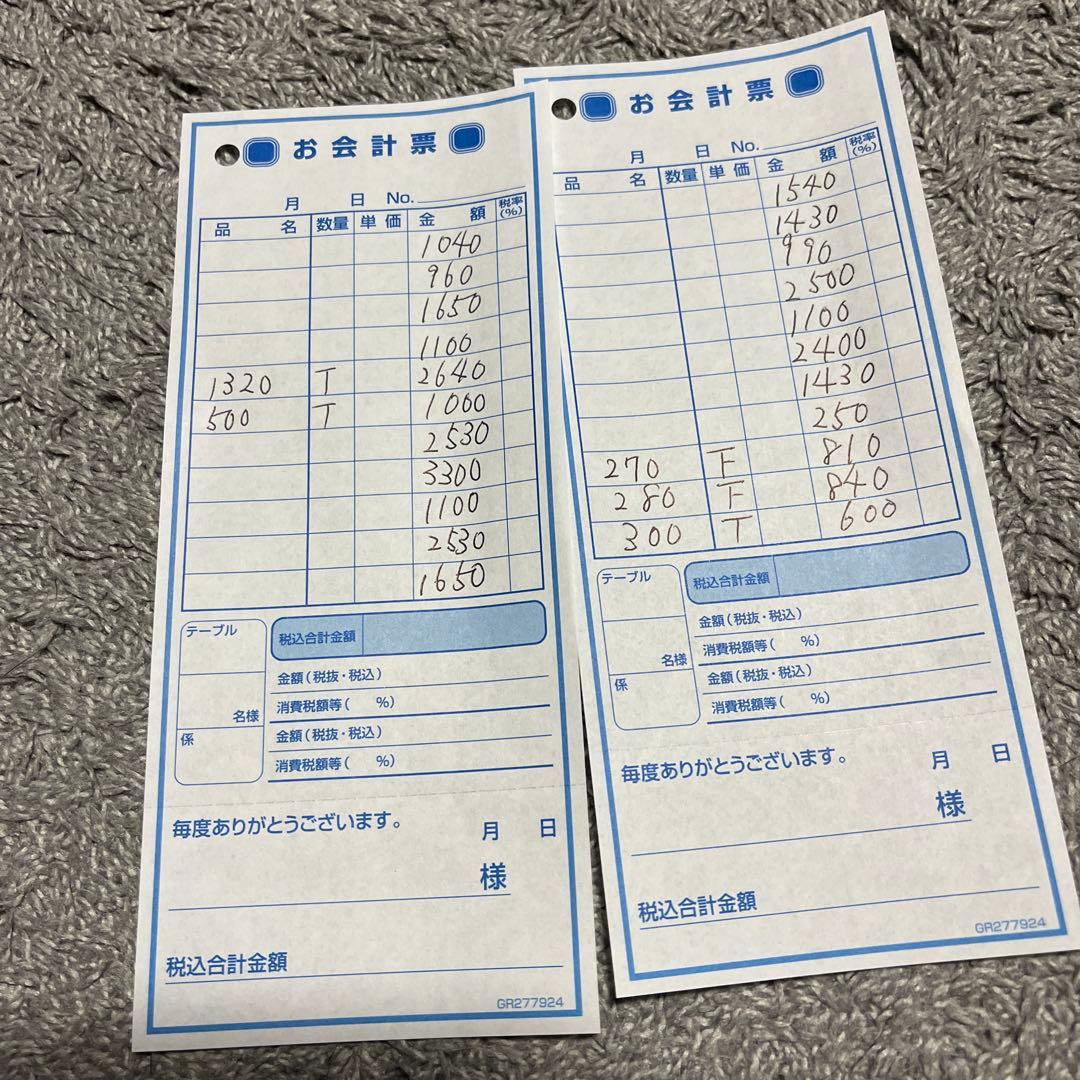 お会計票
月 日 No.
品 名 数量 単価 金 額 税率(%)
1040
960
1650
1100
1320 T 2640
500 T 1000
2530
3300
1100
2530
1650
テーブル
名様
係
税込合計金額
金額(税抜・税込)
消費税額等( %)
金額(税抜・税込)
消費税額等( %)
毎度ありがとうございます。
月 日
様
税込合計金額
GR277924
お会計票
月 日 No.
品 名 数量 単価 金 額 税率(%)
1540
1430
990
2500
1100
2400
1430
250
270 F 810
280 F 840
300 T 600
テーブル
名様
係
税込合計金額
金額(税抜・税込)
消費税額等( %)
金額(税抜・税込)
消費税額等( %)
毎度ありがとうございます。
月 日
様
税込合計金額
GR277924